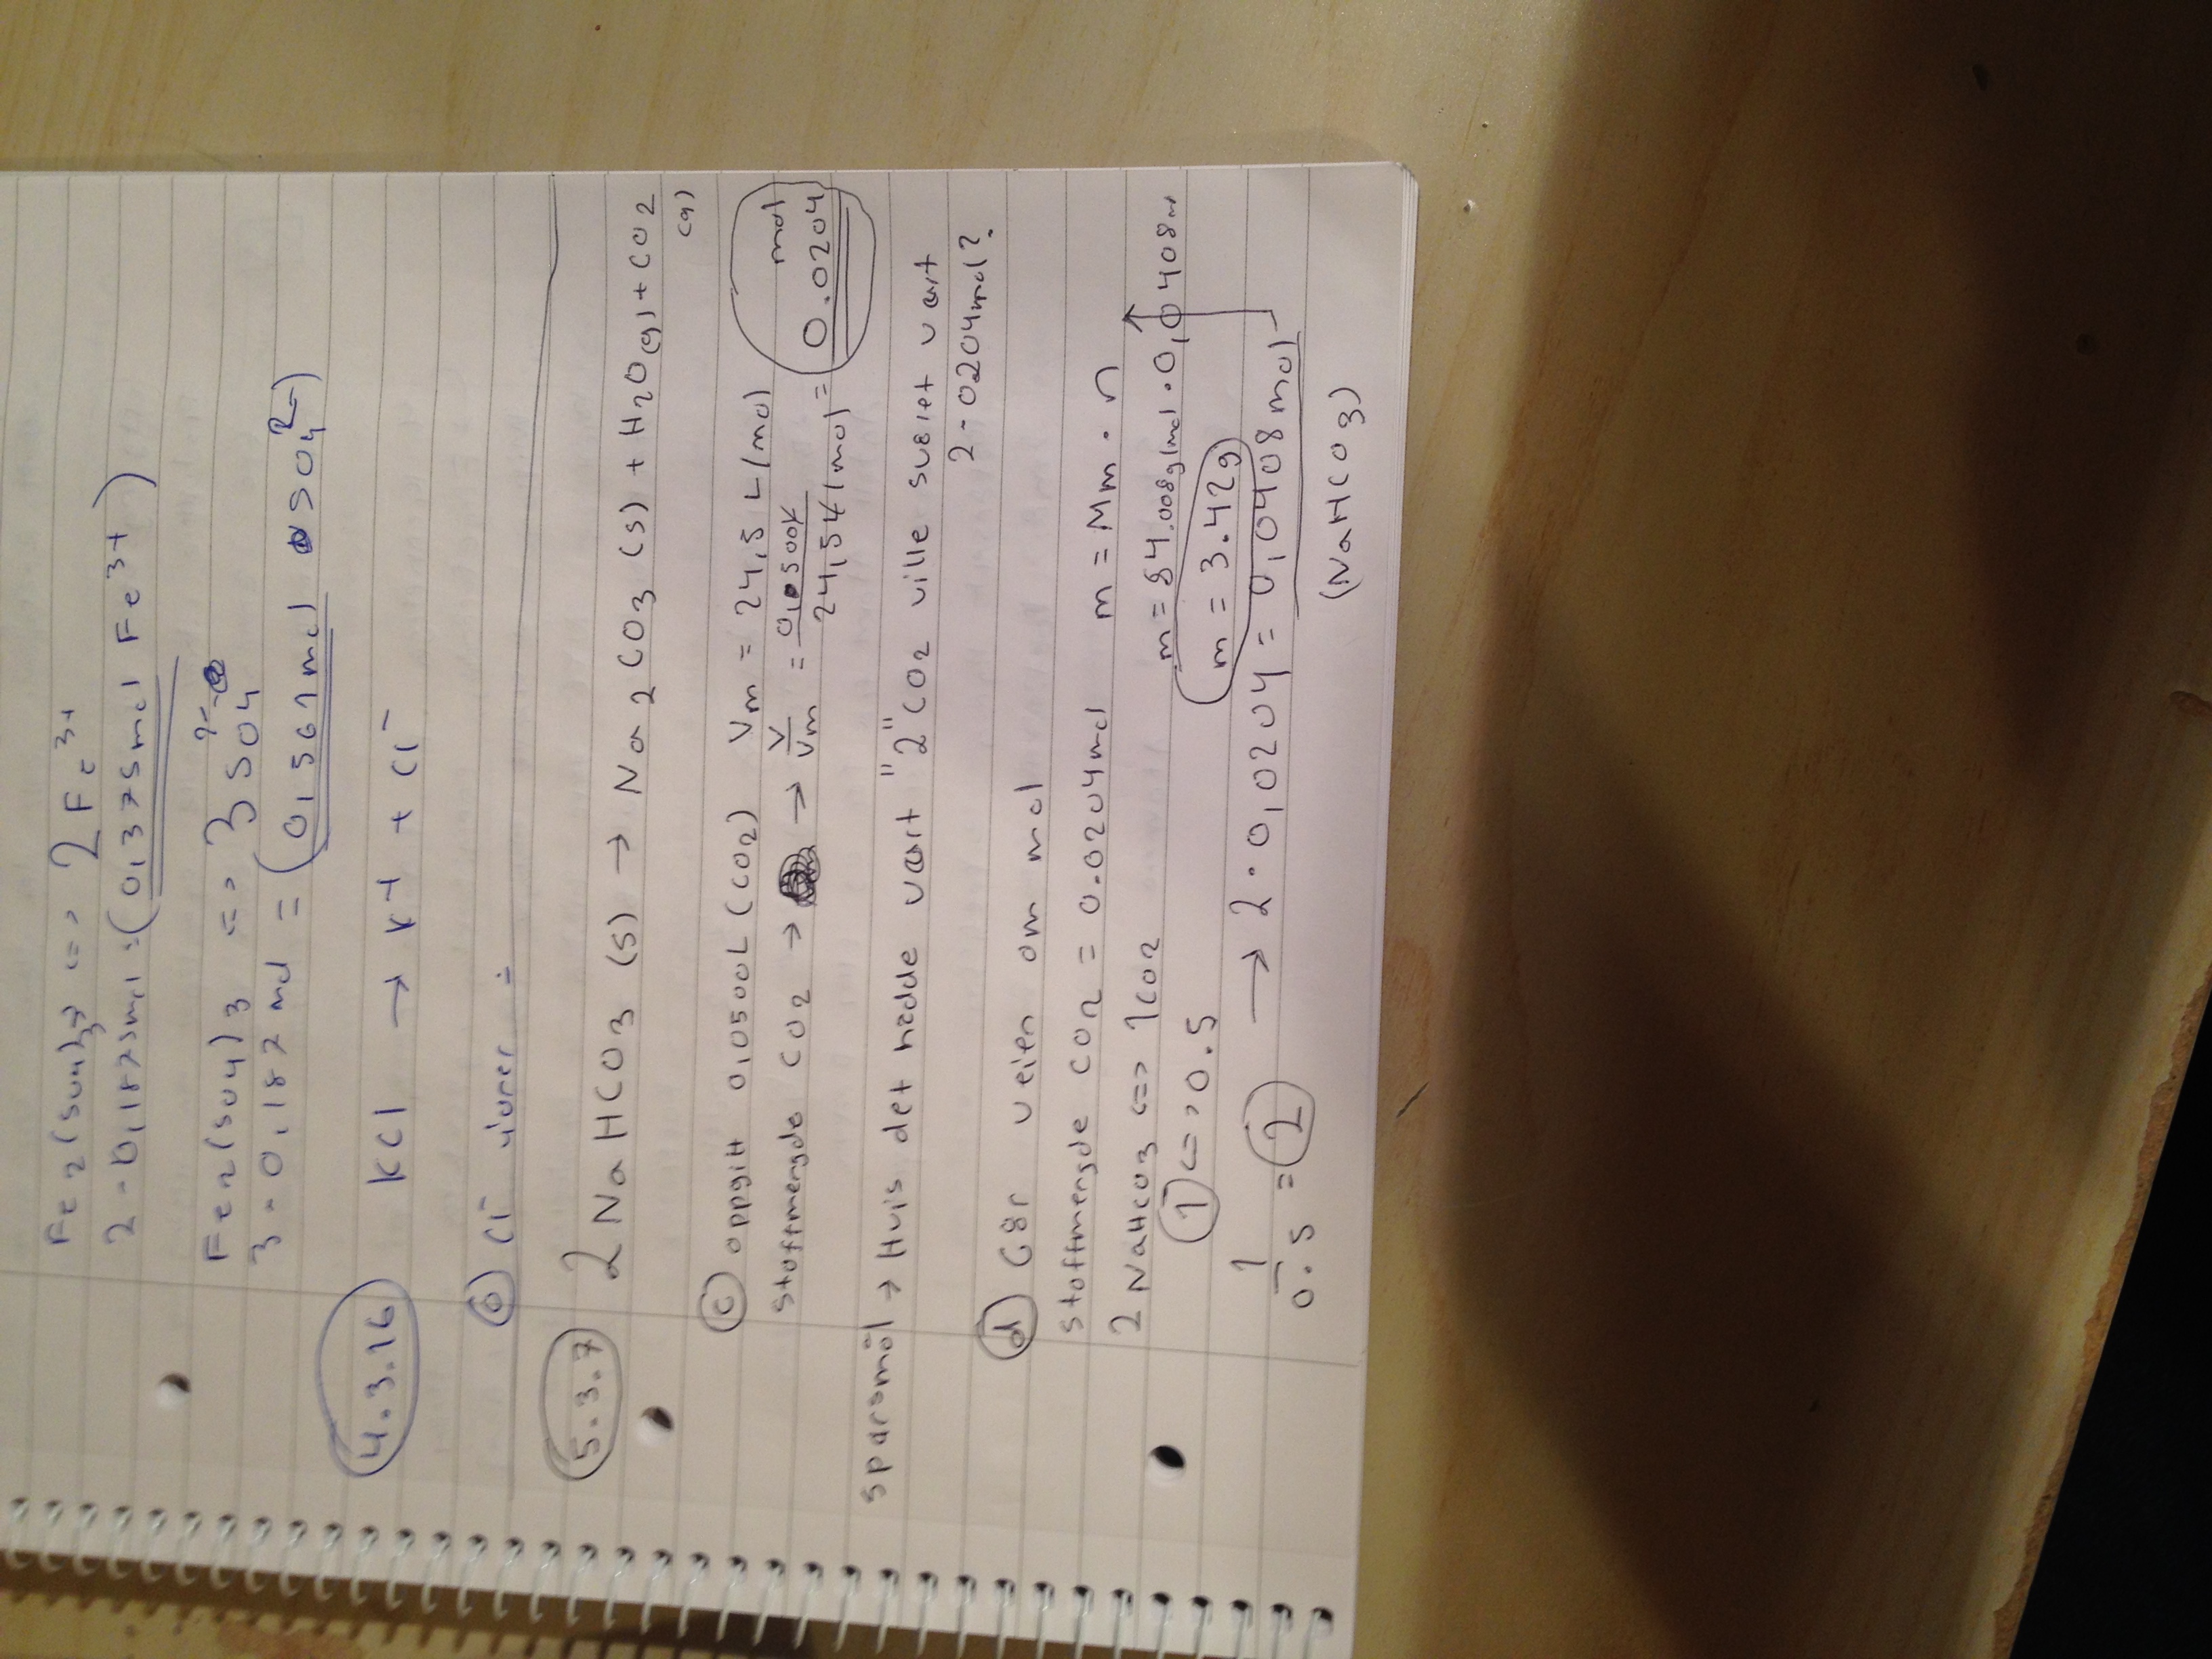 Fe2(SO4)3 <=> 2Fe3+
2 · 0,1875mol = (0,375mol Fe3+)
Fe2(SO4)3 <=> 3SO4 2-
3 · 0,187 mol = (0,561mol SO4 2-)
4.3.16 KCl → K+ + Cl-
a) Cl-
5.3.7 2NaHCO3 (s) → Na2CO3 (s) + H2O(g) + CO2
(g)
c) oppgitt 0,0500L (CO2) Vm = 24,5 L/mol
stoffmengde CO2 → → V/Vm = 0,0500L / 24,5L/mol = 0.0204 mol
spørsmål → Hvis det hadde vært "2" CO2 ville svaret vært
2 · 0204mol?
d) Går veien om mol
stoffmengde CO2 = 0.0204mol m = Mm · n
2 NaHCO3 <=> 1CO2 m = 84.008g/mol · 0,0408m
1 <=> 0.5 m = 3.42g
1/0.5 = 2 → 2 · 0,0204 = 0,0408 mol
(NaHCO3)